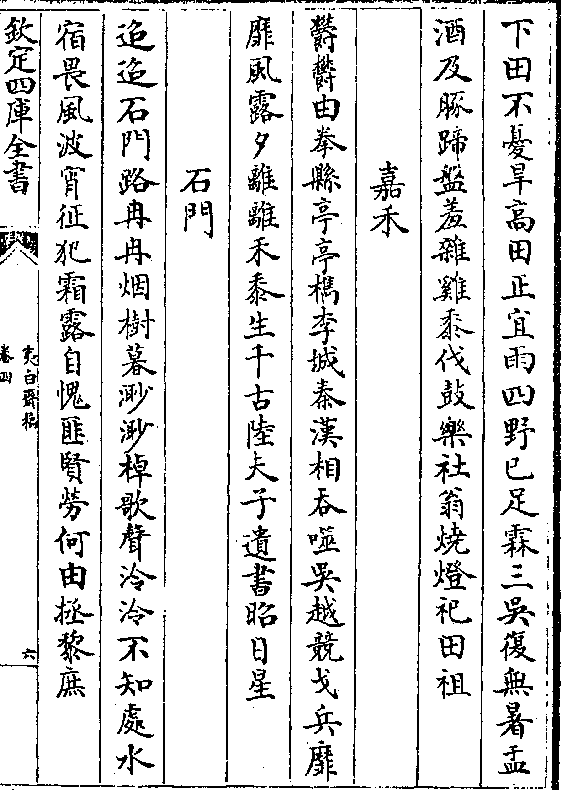 下田不憂旱高田正宜雨四野已足霖三吳復無暑盂
酒及豚蹄盤羞雜雞黍伐鼓樂社翁燒燈祀田祖
嘉禾
鬱鬱由拳縣亭亭檇李城秦漢相吞噬吳越競戈兵靡
靡風露夕離離禾黍生千古陸夫子遺書昭日星
石門
迢迢石門路冉冉烟樹暮渺渺棹歌聲泠泠不知處水
宿畏風波宵征犯霜露自愧匪賢勞何由拯黎庶
欽定四庫全書
夷白齋稿
卷四
六